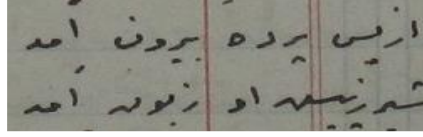 از پس پرده بیرون آمد
شیر زپیش او زبون آمد